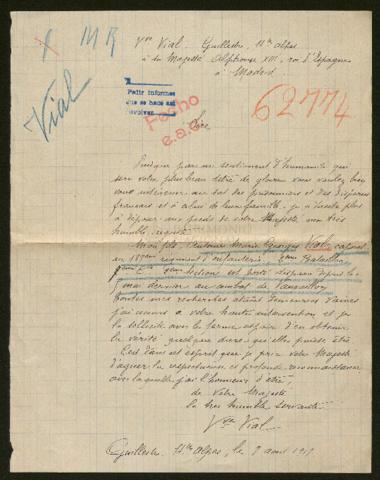 X MR
Vial
Vve Vial. Guillestre. Htes alpes
à sa Majesté Alphonse XIII, roi d'Espagne
à Madrid
Pedir informes
que se hace así
Fecho
e.a.c.
62774
Sire
Puisque par un sentiment d'humanité qui
sera votre plus beau titre de gloire vous voulez bien
vous intéresser au sort des prisonniers et des disparus
français et à celui de leur famille, je n'hésite plus
à déposer aux pieds de votre Majesté ma très
humble requête
Mon fils Antoine Marie Georges Vial caporal
au régiment d'infanterie, Bataillon
section est porté disparu depuis le
mai dernier au combat de
toutes mes recherches étant demeurées vaines
j'ai recours à votre haute intervention et je
la sollicite avec le ferme espoir d'en obtenir
la vérité quelque dure qu'elle puisse être
C'est dans cet espoir que je prie votre Majesté
d'agréer la respectueuse et profonde reconnaissance
avec laquelle j'ai l'honneur d'être,
de Votre Majesté
la très humble servante
Vve Vial
Guillestre. Htes alpes, le avril